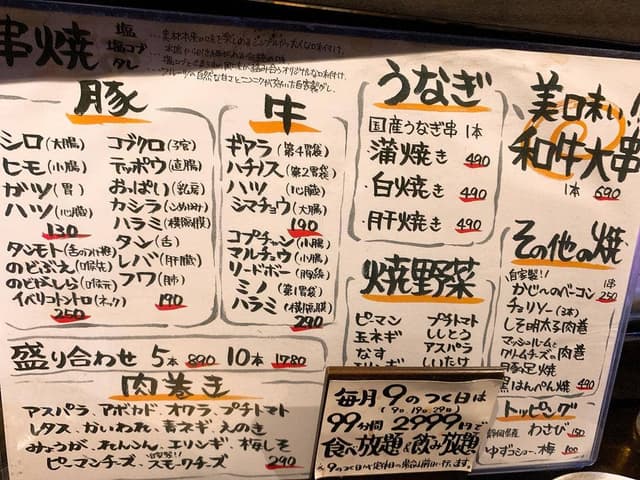 串焼
塩
塩コブ
タレ
豚
シロ(大腸)
ヒモ(小腸)
ガツ(胃)
ハツ(心臓)
130
タンモト(舌の付根)
のどぶえ(喉笛)
のどがしら(喉元)
イベリコトントロ(ネック)
250
コブクロ(子宮)
テッポウ(直腸)
おっぱい(乳房)
カシラ(こめかみ)
ハラミ(横隔膜)
タン(舌)
レバ(肝臓)
フワ(肺)
190
牛
ギアラ(第4胃袋)
ハチノス(第2胃袋)
ハツ(心臓)
シマチョウ(大腸)
190
コプチャン(小腸)
マルチョウ(小腸)
リードボー(胸腺)
ミノ(第1胃袋)
ハラミ(横隔膜)
290
うなぎ
国産うなぎ串 1本
蒲焼き 490
白焼き 490
肝焼き 490
美味い!!
和牛大串
1本 690
焼野菜
ピーマン
玉ネギ
なす
プチトマト
ししとう
アスパラ
しいたけ
その他の焼
自家製!!
かじやのベーコン 1本 250
チョリソー(3本)
しそ明太子肉巻
マッシュルームと
クリームチーズの肉巻
豚足焼
黒はんぺん焼 490
トッピング
静岡県産 わさび 150
ゆずコショー、梅 100
盛り合わせ 5本 890 10本 1780
肉巻き
アスパラ、アボカド、オクラ、プチトマト
レタス、かいわれ、青ネギ、えのき
みょうが、れんこん、エリンギ、梅しそ
ピーマンチーズ、自家製!!スモークチーズ 290
毎月9のつく日は
(9日.19日.29日)
99分間2999円で
食べ放題&飲み放題